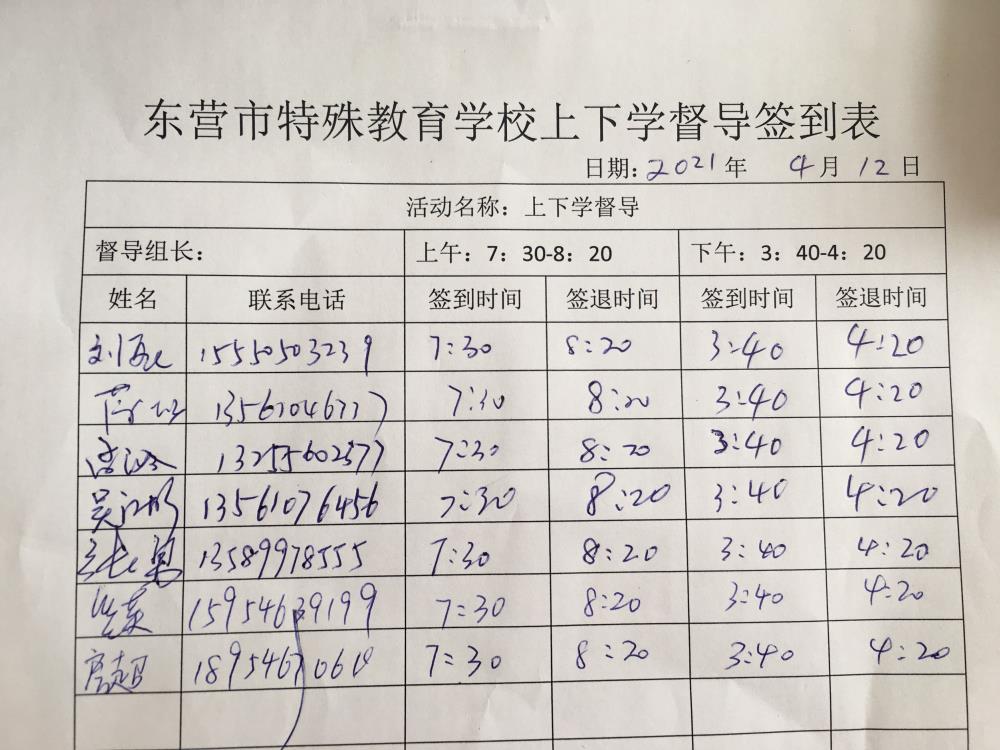 东营市特殊教育学校上下学督导签到表
日期：2021年 4月12日
活动名称：上下学督导
督导组长： 上午：7：30-8：20 下午：3：40-4：20
姓名 联系电话 签到时间 签退时间 签到时间 签退时间
15550503239 7:30 8:20 3:40 4:20
13561046777 7:30 8:20 3:40 4:20
13255602577 7:30 8:20 3:40 4:20
13561076456 7:30 8:20 3:40 4:20
13589978555 7:30 8:20 3:40 4:20
15954639199 7:30 8:20 3:40 4:20
7:30 8:20 3:40 4:20